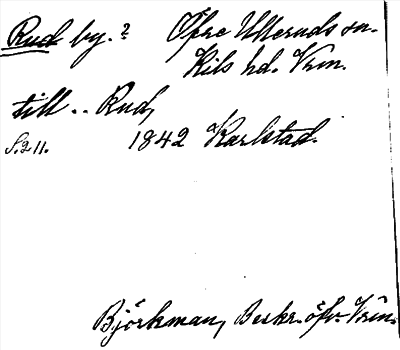 Rud by.? Öfre Ulleruds sn.
Kils hd. Vrm.
till .. Rud,
S. 211. 1842 Karlstad.
Björkman, Beskr. öfv. Vrm.